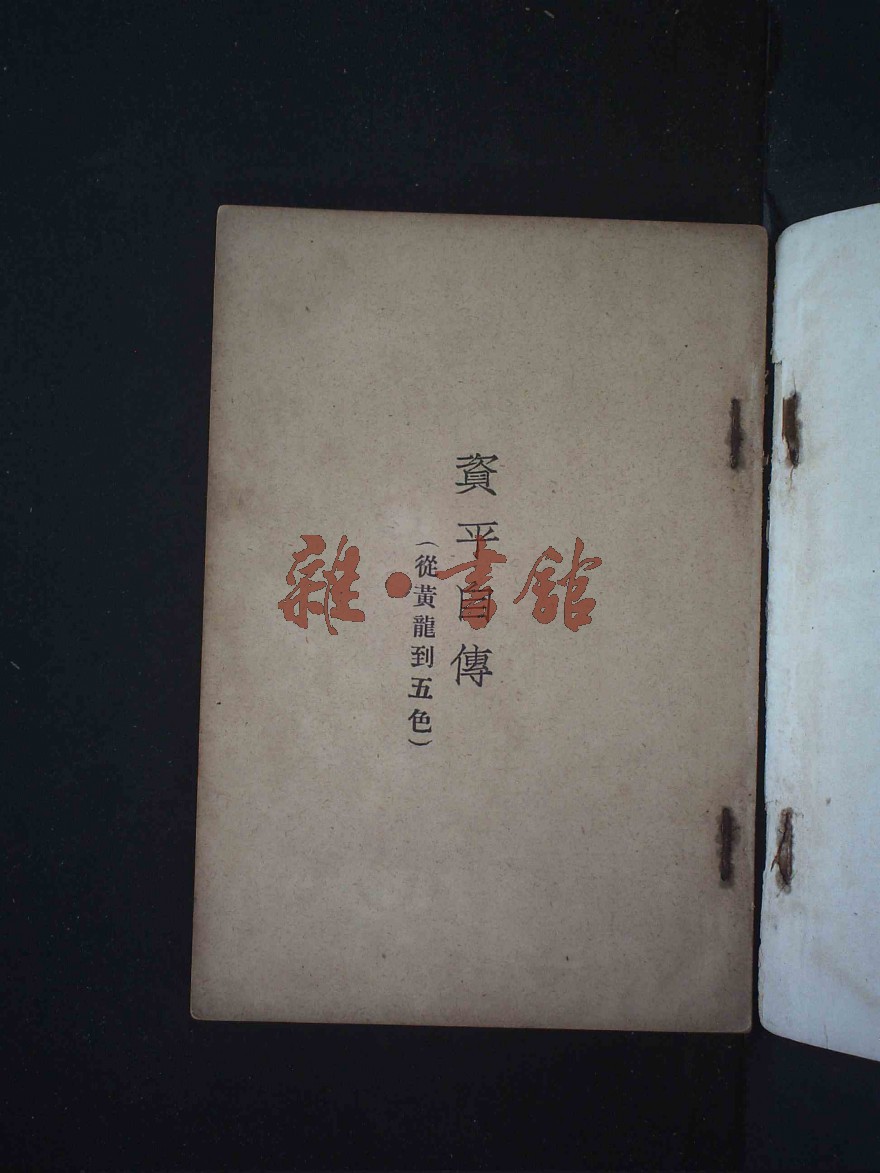 資平自傳
（從黃龍到五色）
雜·書館